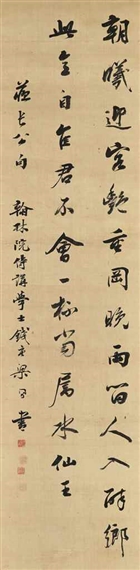 朝曦迎客艷重岡晚雨留人入醉鄉
此意自佳君不會一杯當屬水仙王
蘇長公句
翰林院侍講學士錢唐梁同書